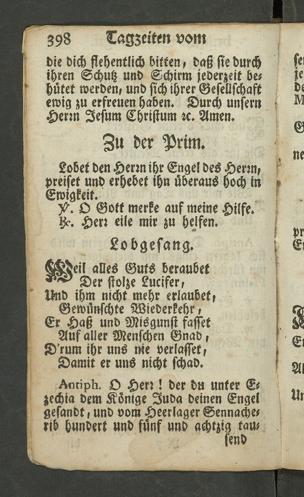 398 Tagzeiten vom
die dich flehentlich bitten, daß sie durch
ihren Schutz und Schirm jederzeit be-
hütet werden, und sich ihrer Gesellschaft
ewig zu erfreuen haben. Durch unsern
Herrn Jesum Christum ꝛc. Amen.
Zu der Prim.
Lobet den Herrn ihr Engel des Herrn,
preiset und erhebet ihn überaus hoch in
Ewigkeit.
℣. O Gott merke auf meine Hilfe.
℟. Herr eile mir zu helfen.
Lobgesang.
Weil alles Guts beraubet
Der stolze Lucifer,
Und ihm nicht mehr erlaubet,
Gewünschte Wiederkehr,
Er Haß und Misgunst fasset
Auf aller Menschen Gnad,
D'rum ihr uns nie verlasset,
Damit er uns nicht schad.
Antiph. O Herr! der du unter E-
zechia dem Könige Juda deinen Engel
gesandt, und vom Heerlager Sennache-
rib hundert und fünf und achtzig tau-
send